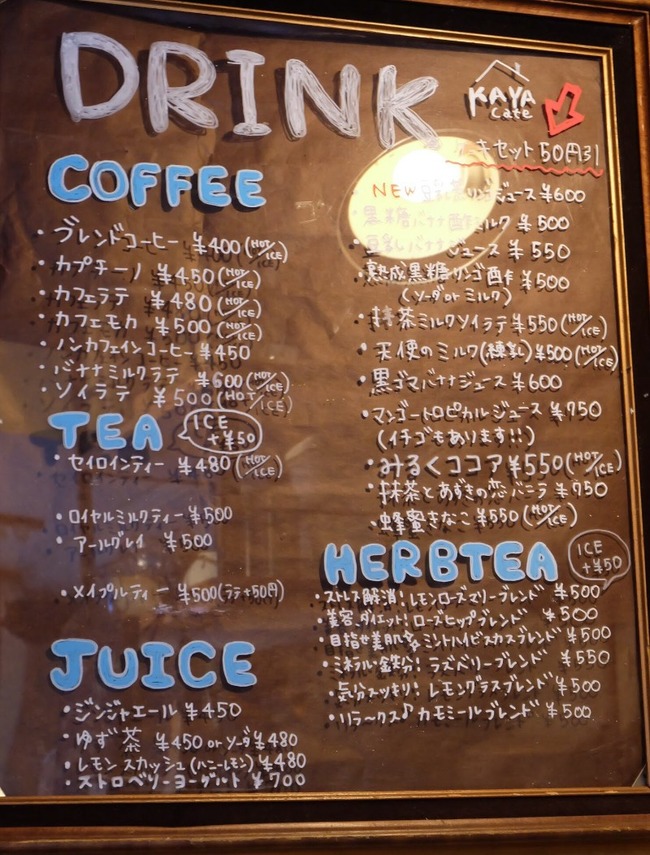 DRINK
KAYA
Cafe
キセット 50円引
COFFEE
・ブレンドコーヒー ¥400(HOT/ICE)
・カプチーノ ¥450(HOT/ICE)
・カフェラテ ¥480(HOT/ICE)
・カフェモカ ¥500(HOT/ICE)
・ノンカフェインコーヒー ¥450
・バナナミルクラテ ¥600(HOT/ICE)
・ソイラテ ¥500(HOT/ICE)
TEA
ICE
+¥50
・セイロインティー ¥480(HOT/ICE)
・ロイヤルミルクティー ¥500
・アールグレイ ¥500
・メイプルティー ¥500(ラテ+50円)
JUICE
・ジンジャエール ¥450
・ゆず茶 ¥450 or ソーダ ¥480
・レモンスカッシュ(ハニーレモン) ¥480
・ストロベリーヨーグルト ¥700
・NEW リンゴジュース ¥600
・黒糖バナナ酢ミルク ¥500
・豆乳バナナジュース ¥550
・熟成黒糖リンゴ酢 ¥500
(ソーダorミルク)
・抹茶ミルクソイラテ ¥550(HOT/ICE)
・天使のミルク(練乳) ¥500(HOT/ICE)
・黒ゴマバナナジュース ¥600
・マンゴートロピカルジュース ¥750
(イチゴもあります!!)
・みるくココア ¥550(HOT/ICE)
・抹茶とあずきの恋バニラ ¥750
・蜂蜜きなこ ¥550(HOT/ICE)
HERBTEA
ICE
+¥50
・ストレス解消!レモンローズマリーブレンド ¥500
・美容、ダイエット!ローズヒップブレンド ¥500
・目指せ美肌 ミントハイビスカスブレンド ¥500
・ミネラル・鉄分!ラズベリーブレンド ¥550
・気分スッキリ!レモングラスブレンド ¥500
・リラ〜クス♪カモミールブレンド ¥500